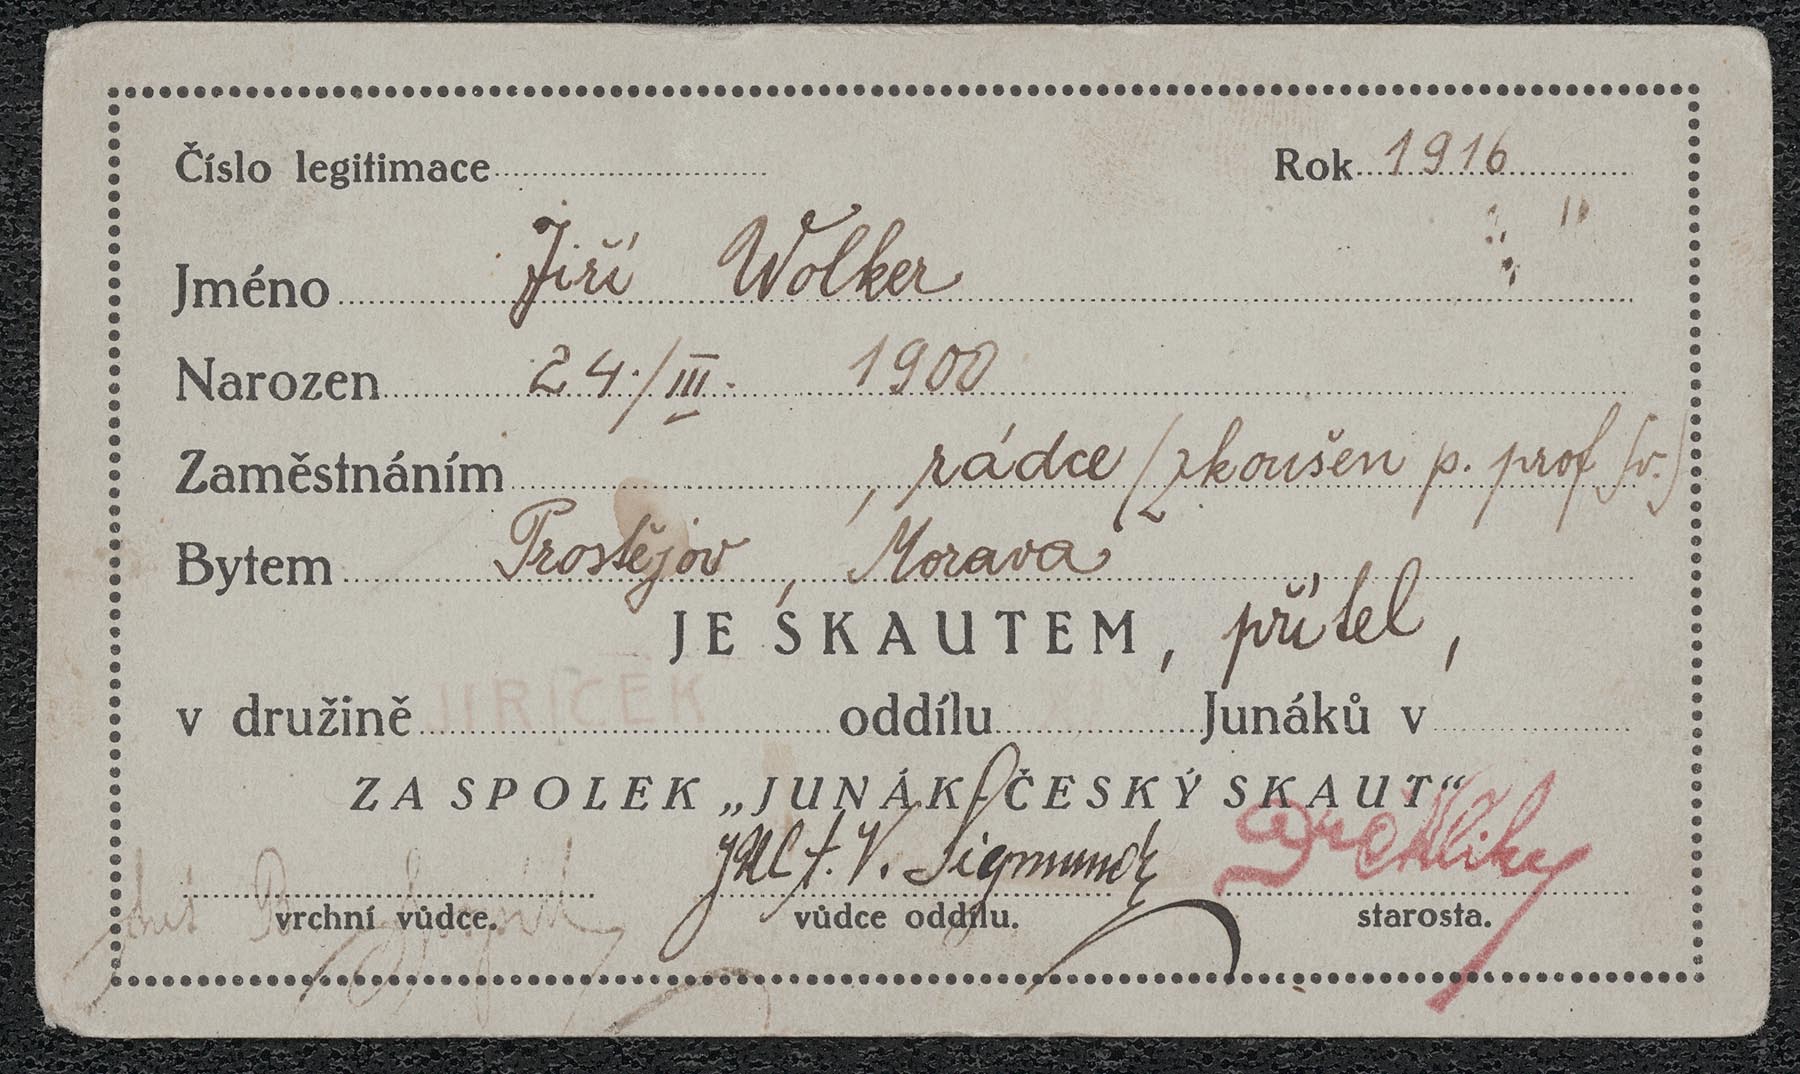 Číslo legitimace Rok 1916
Jméno Jiří Wolker
Narozen 24./III. 1900
Zaměstnáním , rádce (zkoušen p. prof Sv.)
Bytem Prostějov, Morava
JE SKAUTEM, přítel,
v družině JIŘÍČEK oddílu Junáků v
ZA SPOLEK „JUNÁK-ČESKÝ SKAUT“
V. Sigmund
vrchní vůdce. vůdce oddílu. starosta.